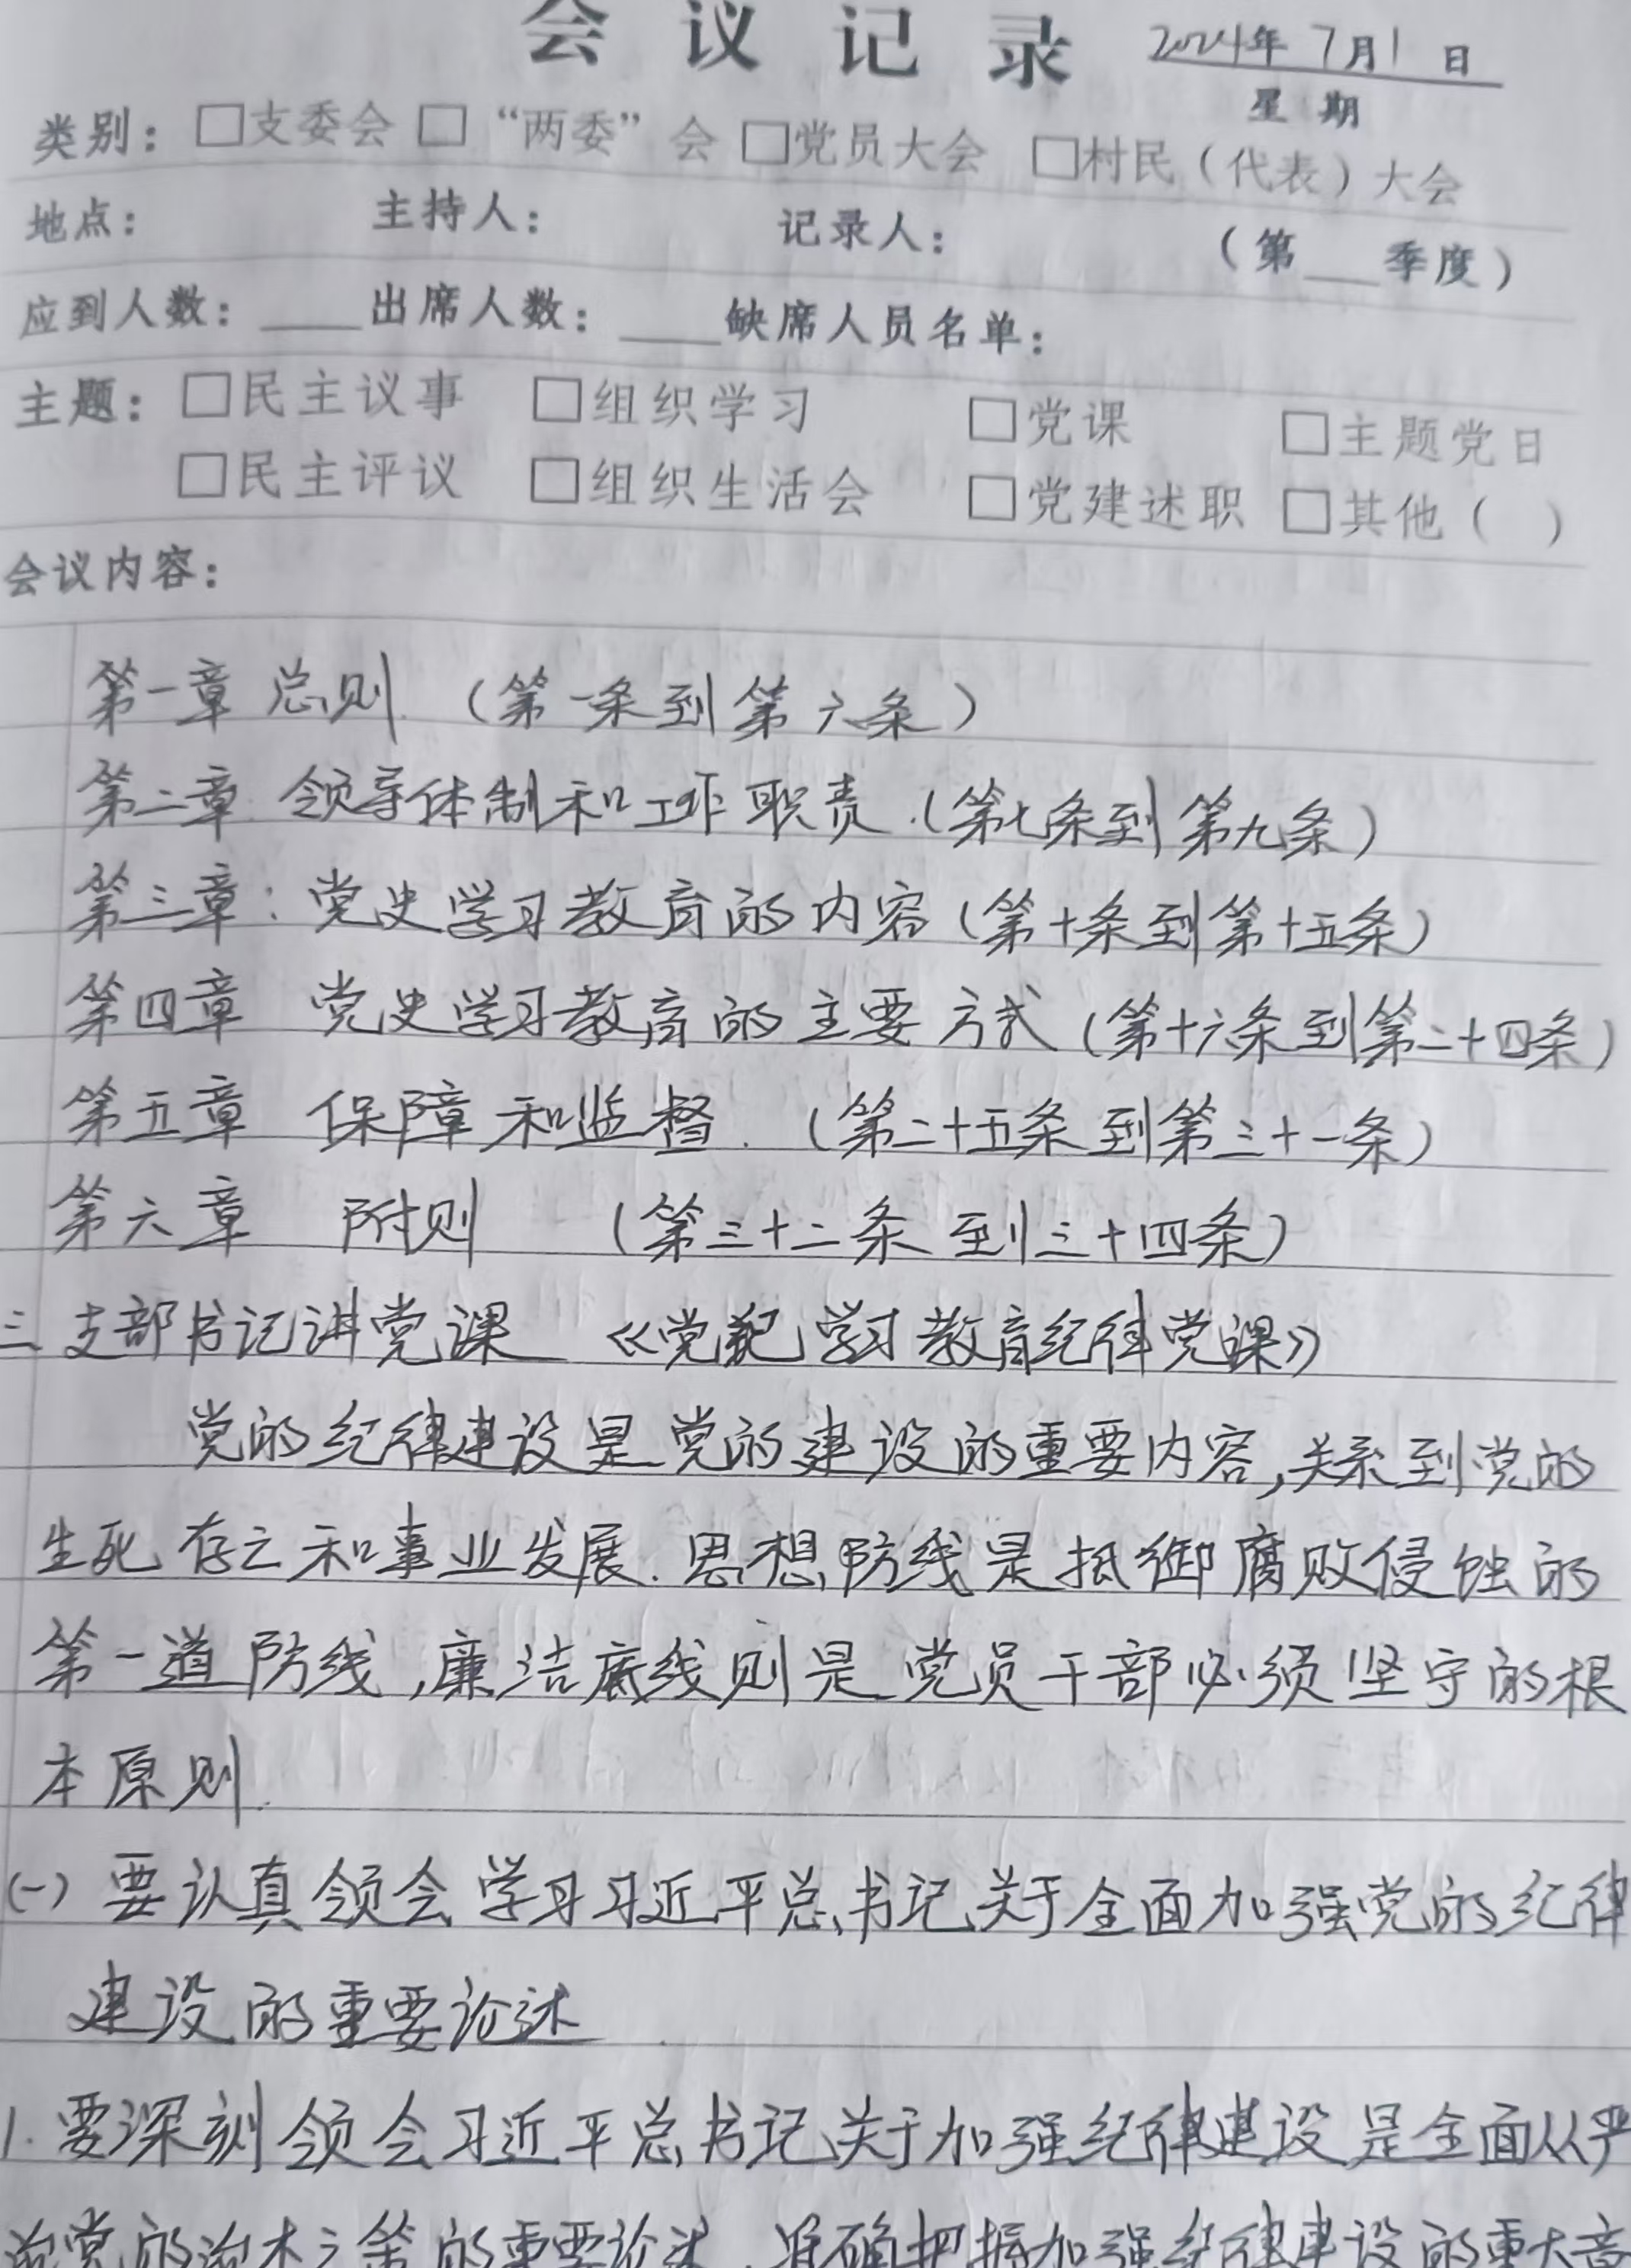 会议记录
2024年7月1日
星期
类别：□支委会 □“两委”会 □党员大会 □村民（代表）大会
地点： 主持人： 记录人： （第___季度）
应到人数：____出席人数：____缺席人员名单：
主题：□民主议事 □组织学习 □党课 □主题党日
□民主评议 □组织生活会 □党建述职 □其他（ ）
会议内容：
第一章 总则 （第一条到第六条）
第二章 领导体制和工作职责（第七条到第九条）
第三章：党史学习教育的内容（第十条到第十五条）
第四章 党史学习教育的主要方式（第十六条到第二十四条）
第五章 保障和监督.（第二十五条到第三十一条）
第六章 附则 （第三十二条到三十四条）
三 支部书记讲党课 《党纪学习教育纪律党课》
党的纪律建设是党的建设的重要内容,关系到党的
生死存亡和事业发展.思想防线是抵御腐败侵蚀的
第一道防线,廉洁底线则是党员干部必须坚守的根
本原则.
(一)要认真领会学习习近平总书记关于全面加强党的纪律
建设的重要论述
1.要深刻领会习近平总书记关于加强纪律建设是全面从严
治党的治本之策的重要论述，准确把握加强纪律建设的重大意